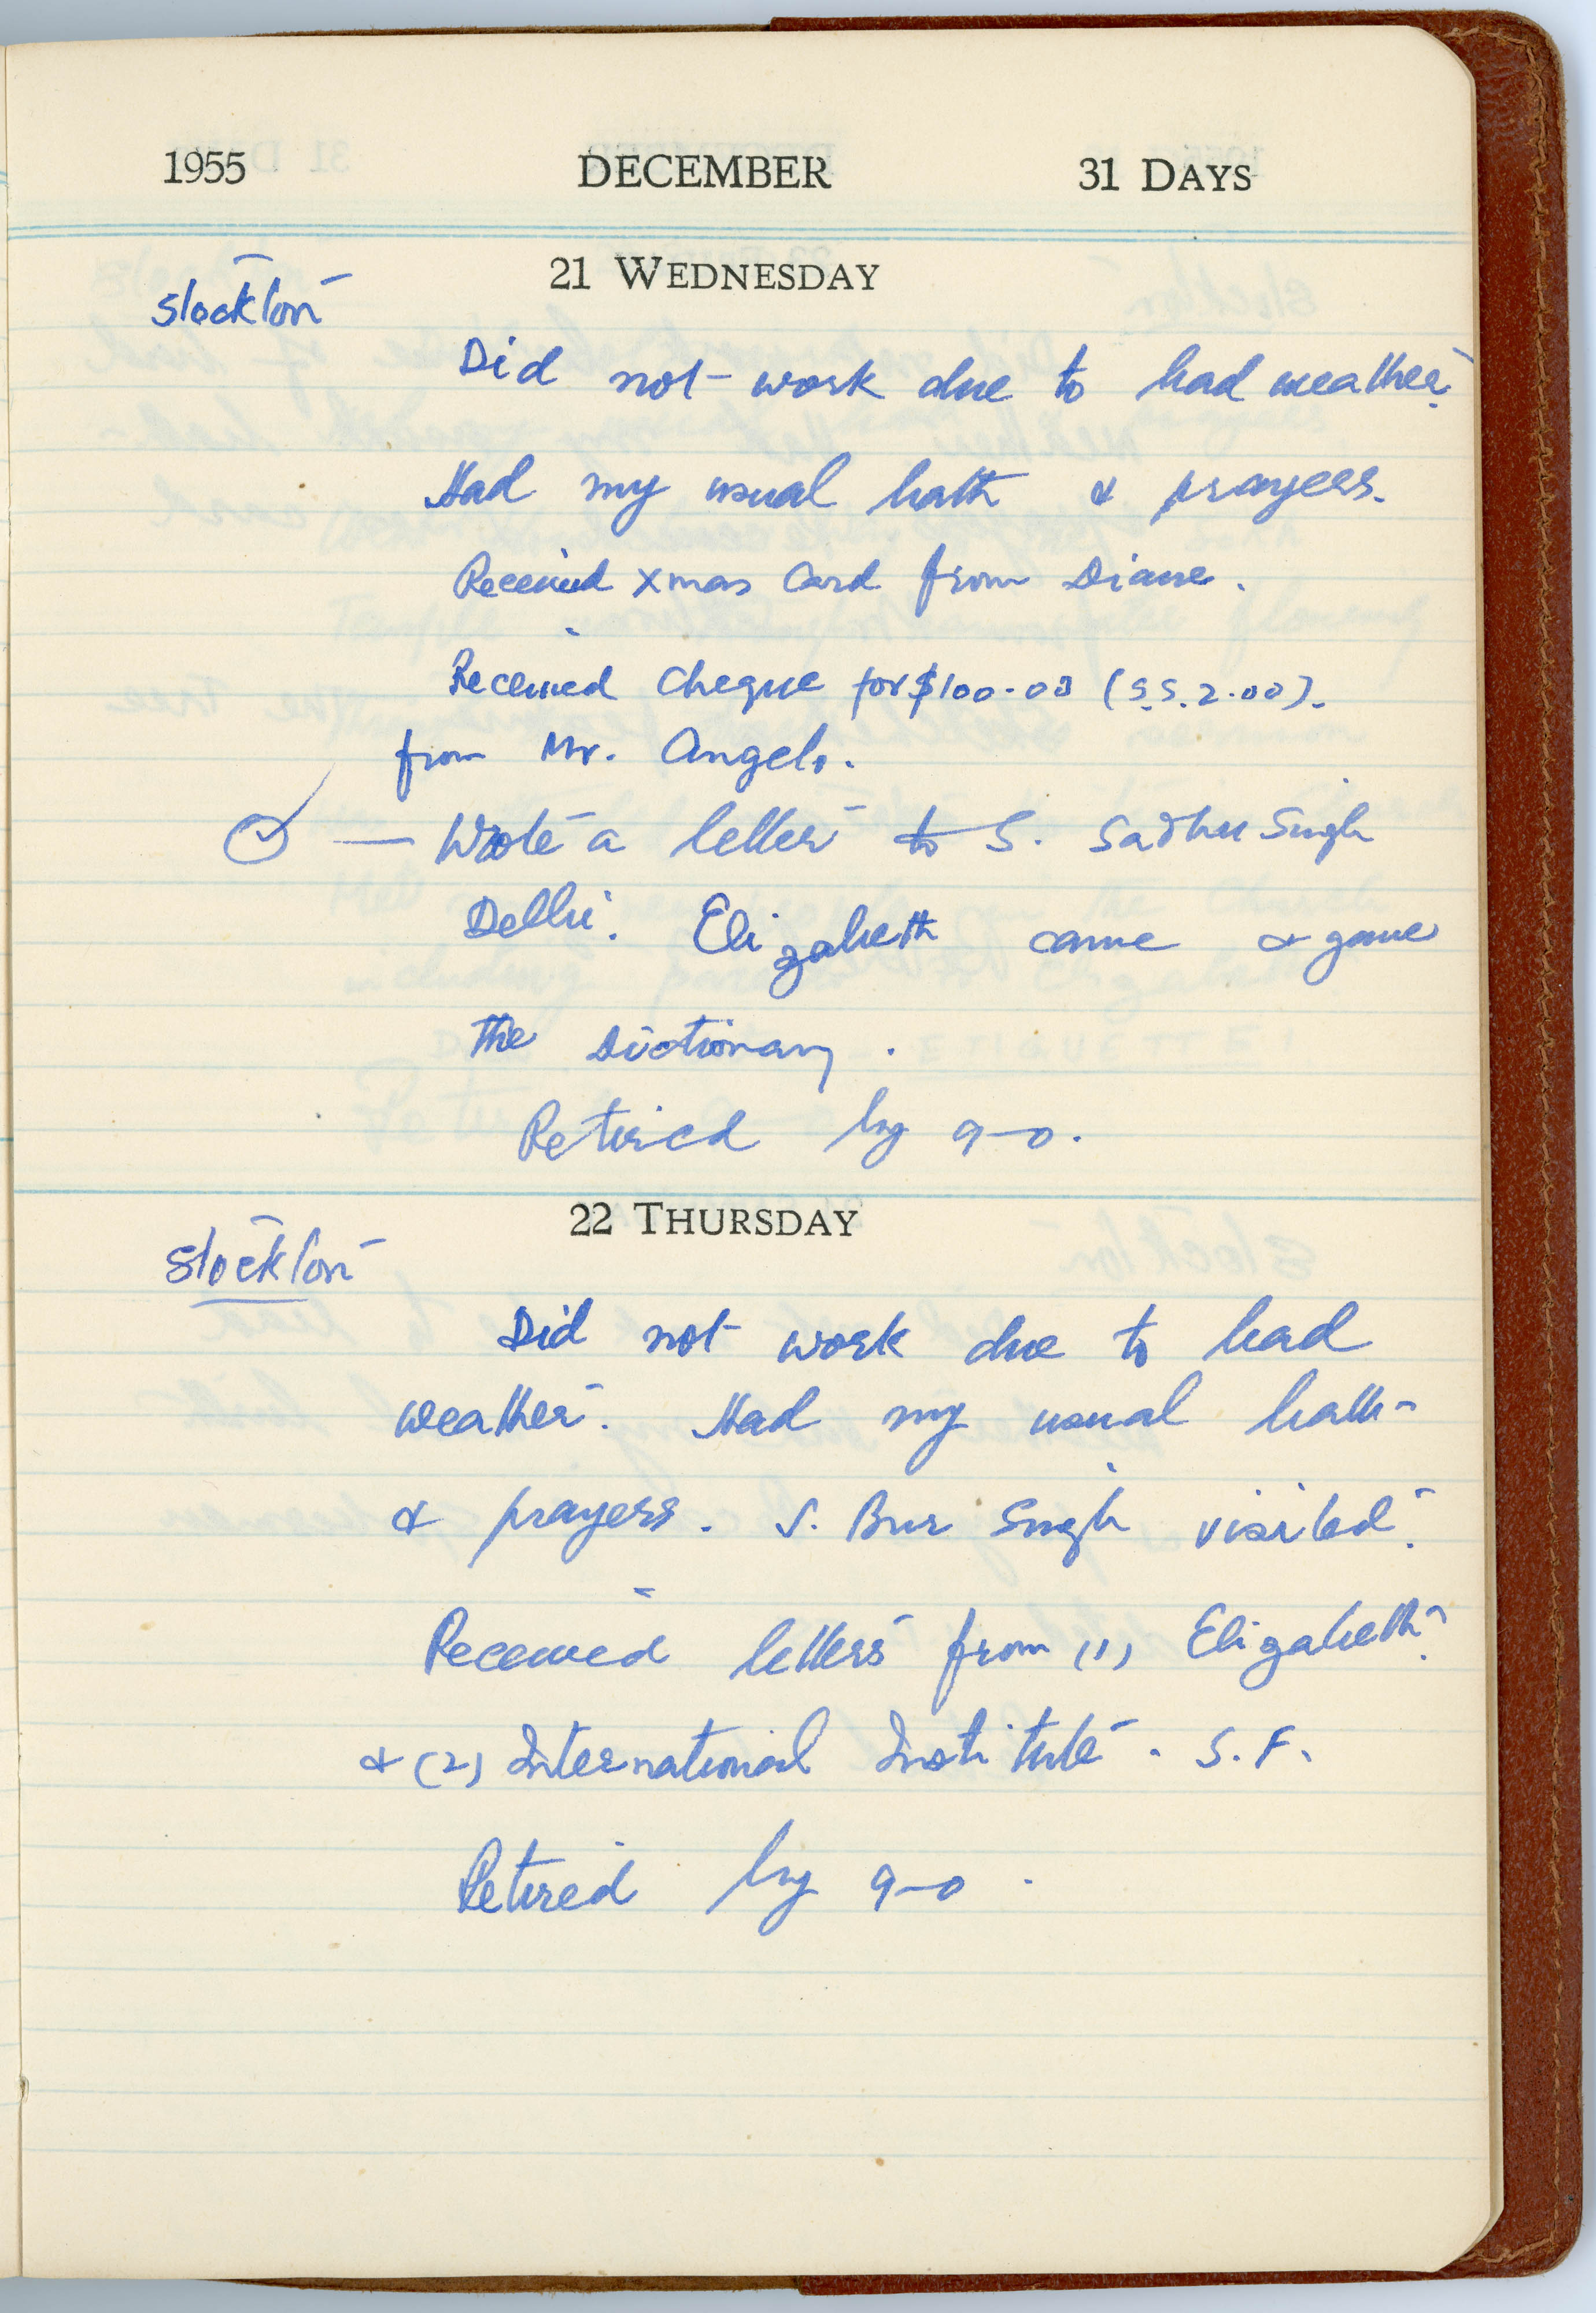 1955 DECEMBER 31 DAYS
21 WEDNESDAY
Stockton
Did not work due to bad weather.
Had my usual bath & prayers.
Received Xmas Card from Diane.
Received Cheque for $100.00 (S.S. 2.00).
from Mr. Angelo.
— Wrote a letter to S. Sadhu Singh
Delhi. Elizabeth came & gave
the Dictionary.
Retired by 9-0.
22 THURSDAY
Stockton
Did not work due to bad
weather. Had my usual bath
& prayers. S. Bur Singh visited.
Received letters from (1) Elizabeth.
& (2) International Institute. S.F.
Retired by 9-0.